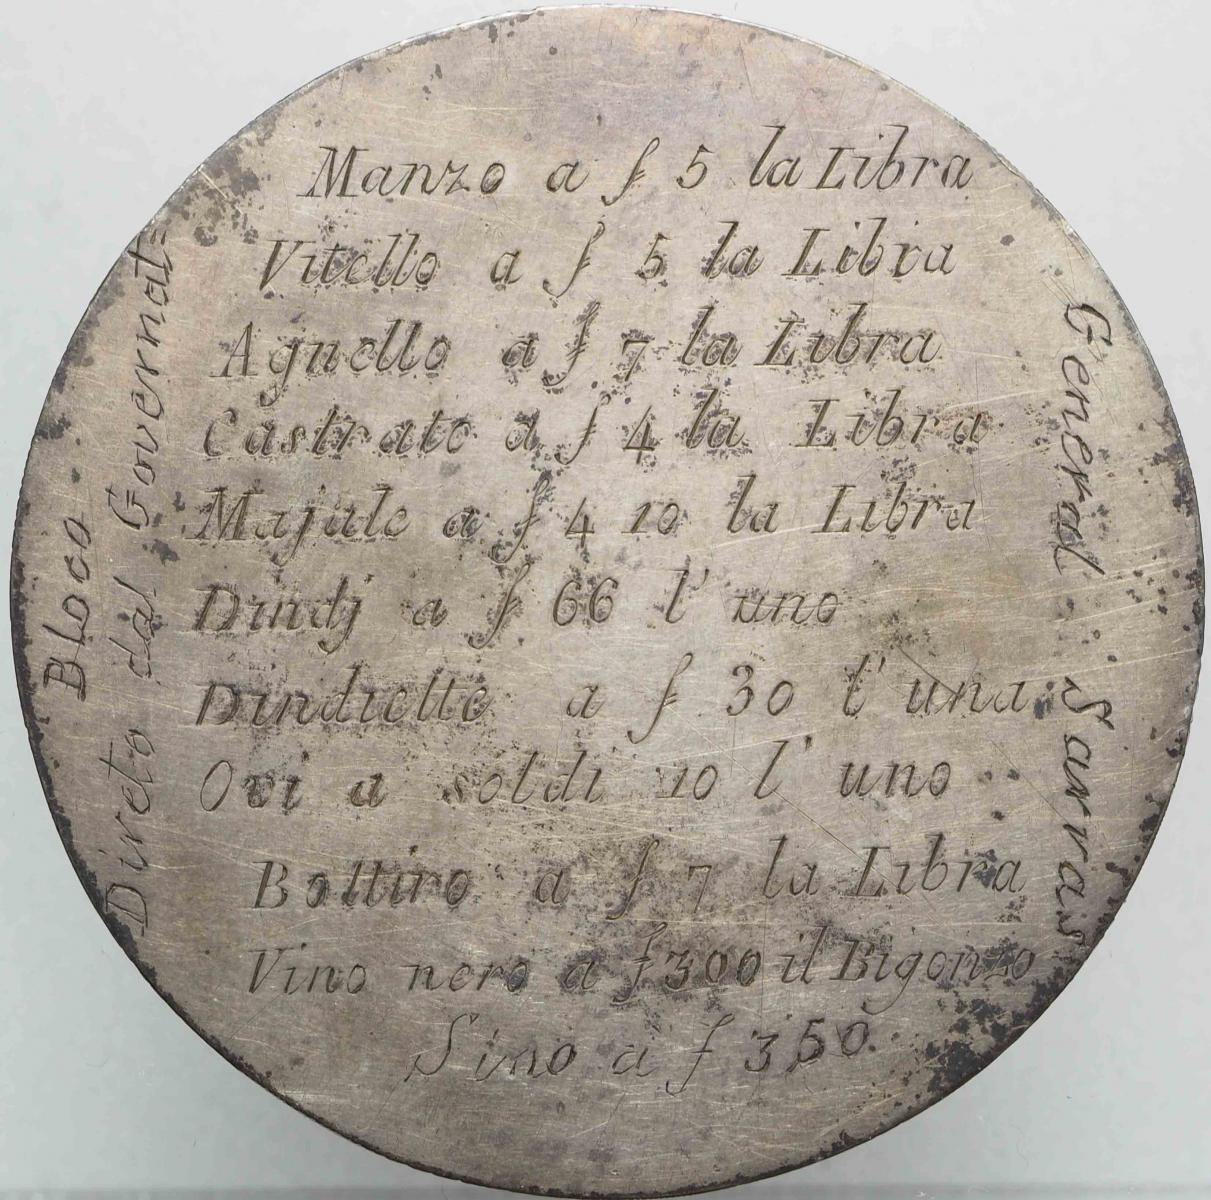 Manzo a £ 5 la Libra
Vitello a £ 5 la Libra
Agnello a £ 7 la Libra
Castrato a £ 4 la Libra
Majale a £ 4 10 la Libra
Dindj a £ 66 l' uno
Dindiette a £ 30 l' una
Ovi a soldi 10 l' uno
Bottiro a £ 7 la Libra
Vino nero a £ 300 il Bigonzo
Sino a £ 350
Bloco
Direto dal Governat:
General Sarras